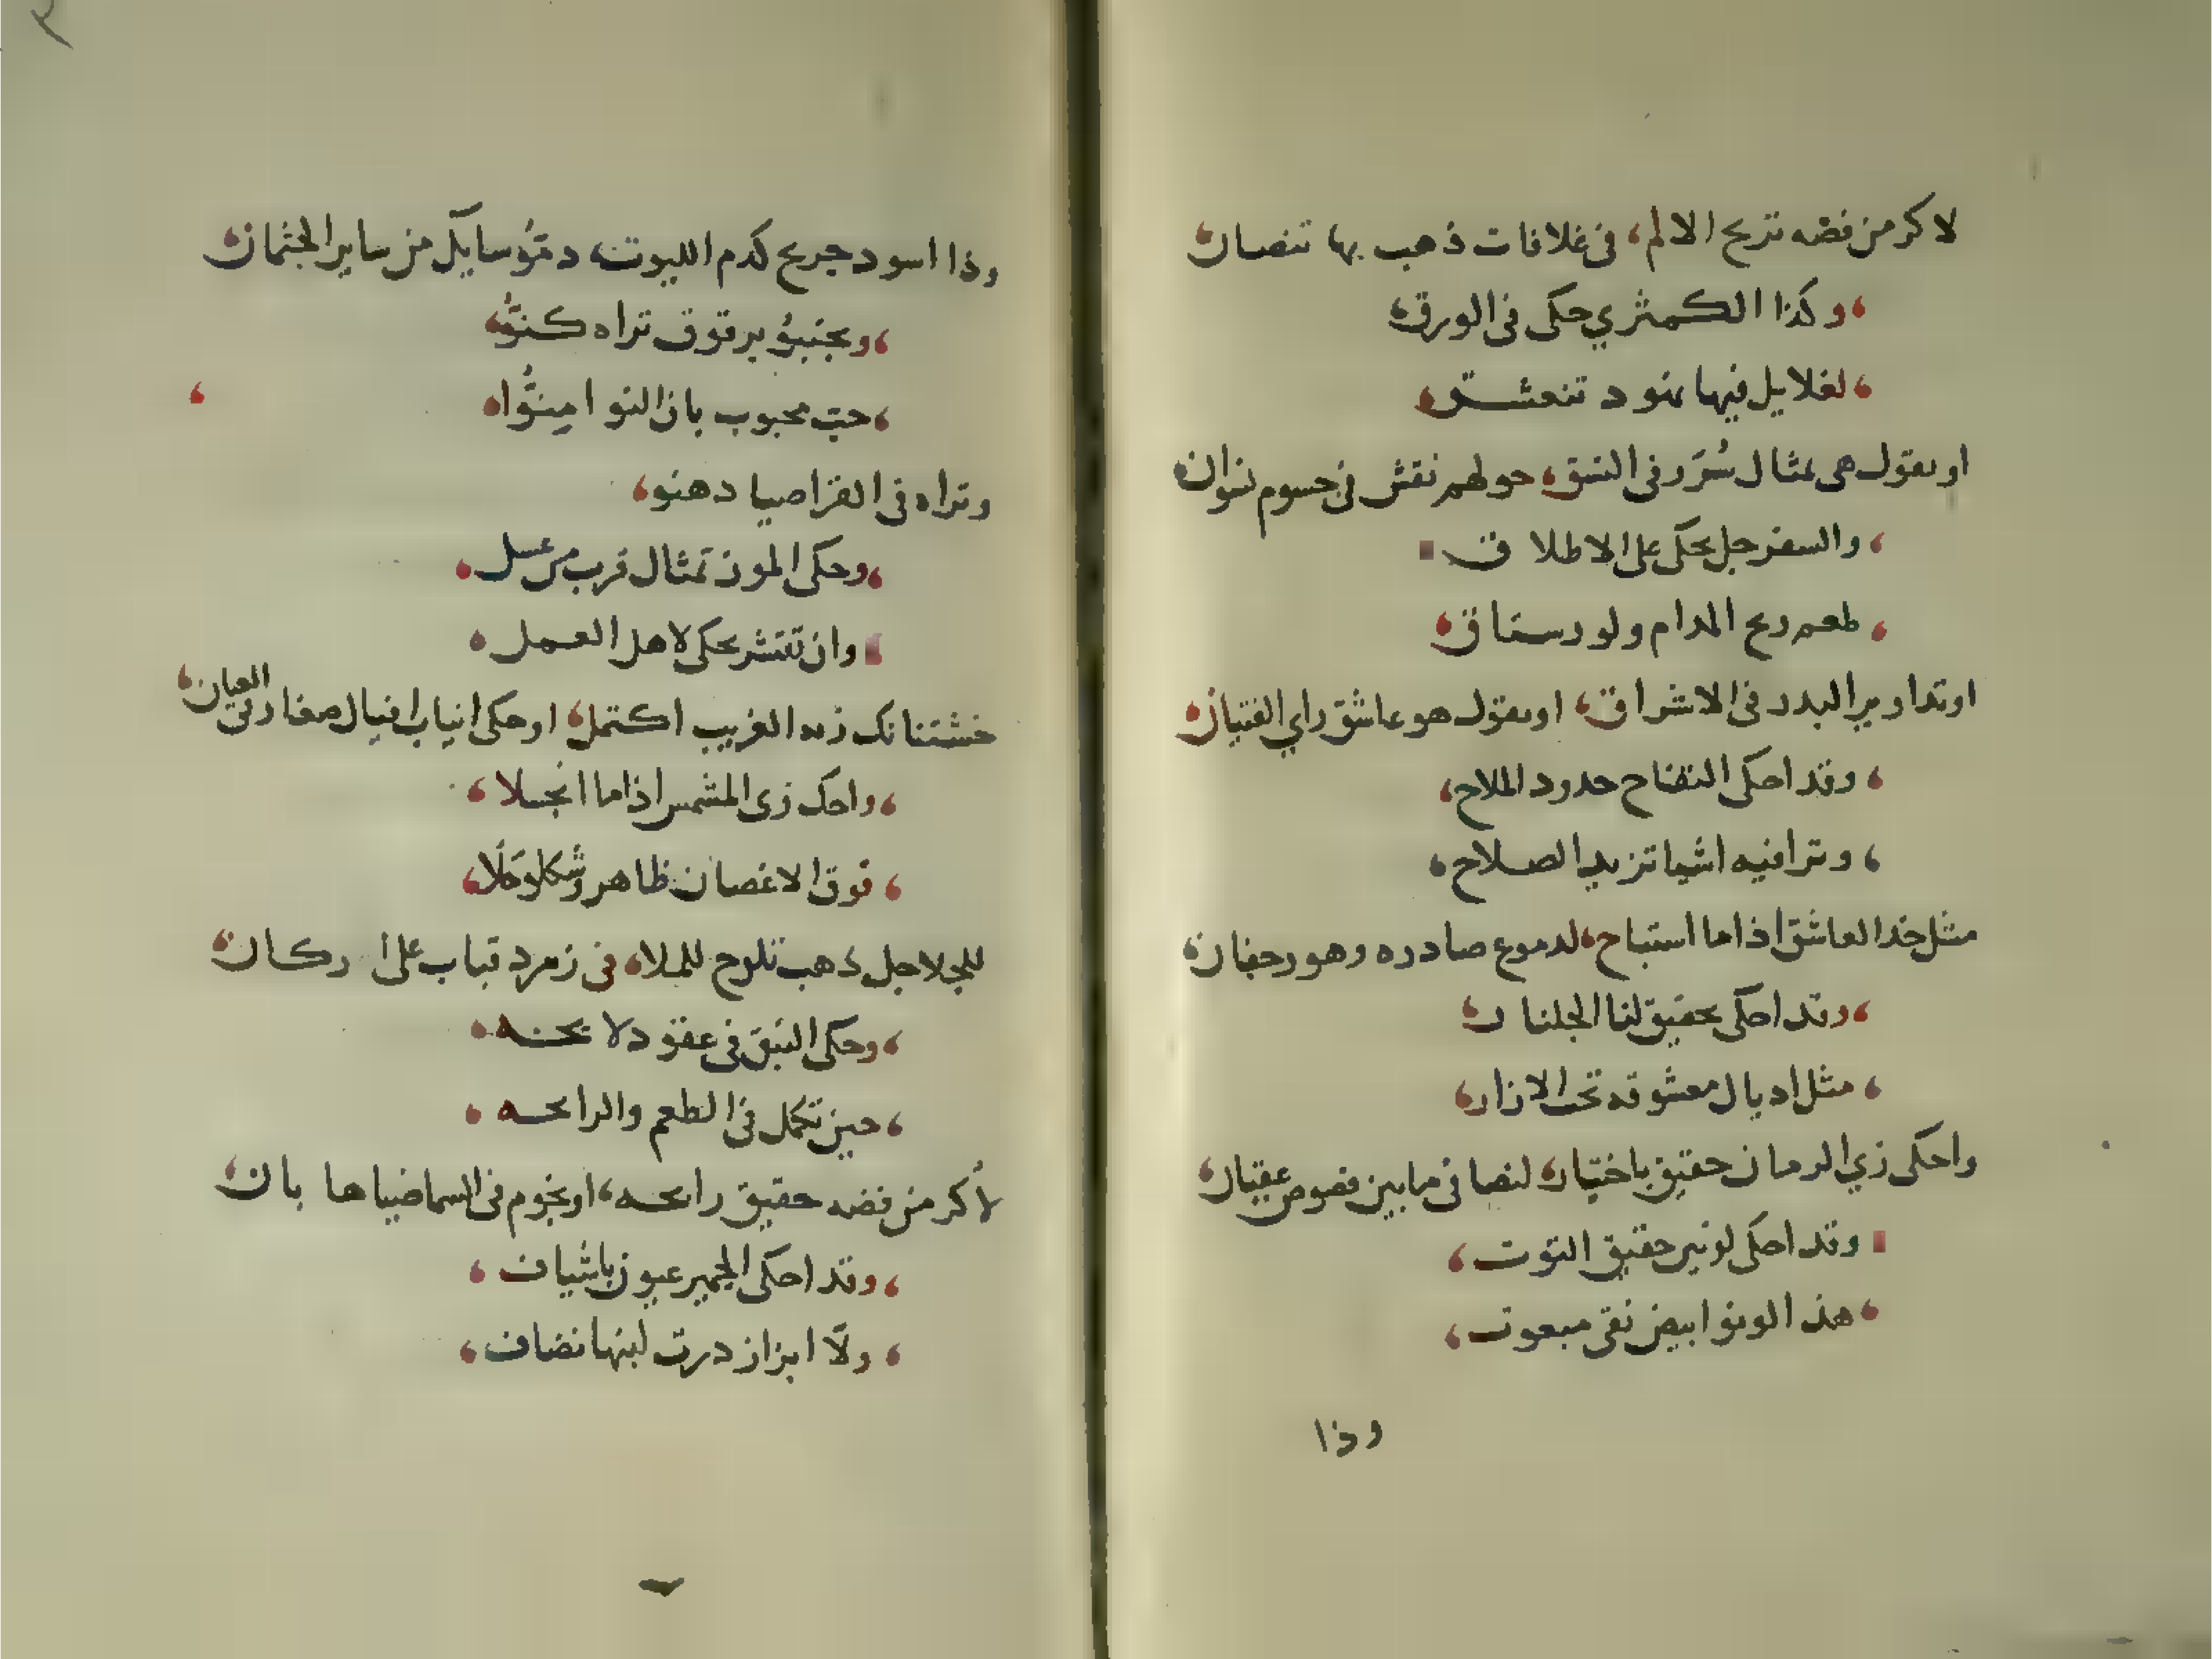 لاكر من فضه تريح الالم، فى غلافات ذهب بها تنصان
وكذا الكمثري حكى فى الورق
لغلايل فيها نهود تنعشق
او نقول هى تمثال سُرَر فى النسق، حولهم نقش فى جسوم نسوان
والسفرجل يحكى على الاطلاق
لطعم ريح المدام ولو رستاق
او تداوير البدر فى الاشراق، او نقول هو عاشق راي الفتيان
وقد احكى التفاح خدود الملاح
وترا فيه اشيا تزيد الصلاح
مثل خد العاشق اذا ما استباح، لدموع صادره وهو رجفان
وقد احكى بحقيق لنا الجلنار
مثل اديال معشوقه تحت الازار
واحكى زي الرمان حقيق باختيار، لنصافى ما بين فصوص عقيان
وقد احكى لونين حقيق التوت
هذا لونو ابيض نقى مبعوت
وذا
وذا اسود جريح كدم الليوت، دمّوُ سايل من ساير الجثمان
وبجنبوُ برقوق تراه كنّوُ
حبّ محبوب بان النوا مِنّوُاه
وتراه فى القراصيا دهنو
وحكى الموز تمثال قرب من عسل
وان تقشر يحكى لاهل العمل
خشتنانك زيد الغريب اكتمل، او حكى انياب افيال صغار للعيان
واحك زى المشمس اذا ما انجلا
فوق الاغصان ظاهر وشكلو حلا
للجلاجل ذهب تلوح للملا، فى زمرد قباب على اركان
وحكى النبق فى عقود لايحه
حين تكمل فى الطعم والرايحه
لأكر من فضه حقيق رايحه، او نجوم فى السما ضياها بان
وقد احكى الجمير عيون باشياف
ولّا ابزاز درت لبنها نضاف